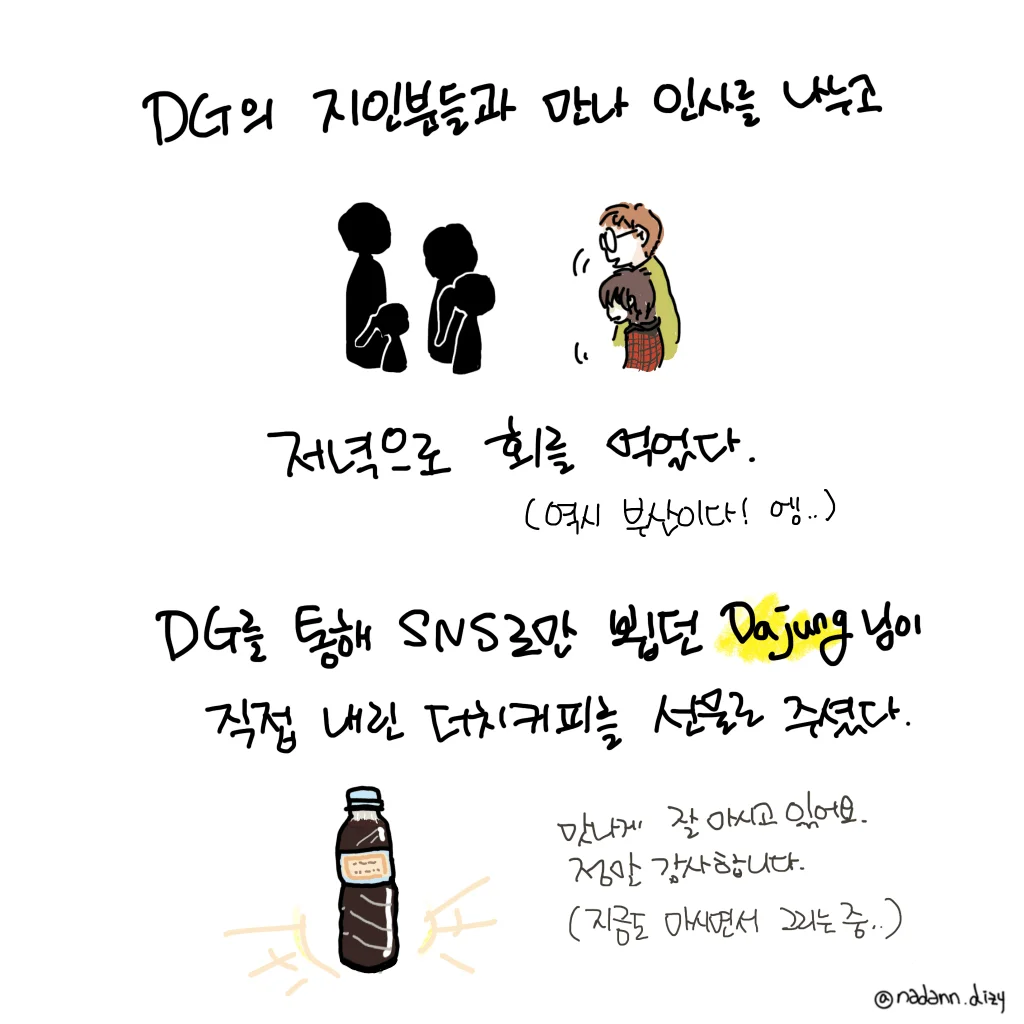 DG의 지인분들과 만나 인사를 나누고
저녁으로 회를 먹었다.
(역시 부산이다! 엥..)
DG를 통해 SNS로만 뵙던 Dajung님이
직접 내린 더치커피를 선물로 주셨다.
맛나게 잘 마시고 있어요.
정말 감사합니다.
(지금도 마시면서 그리는 중..)
@nadann.dizy